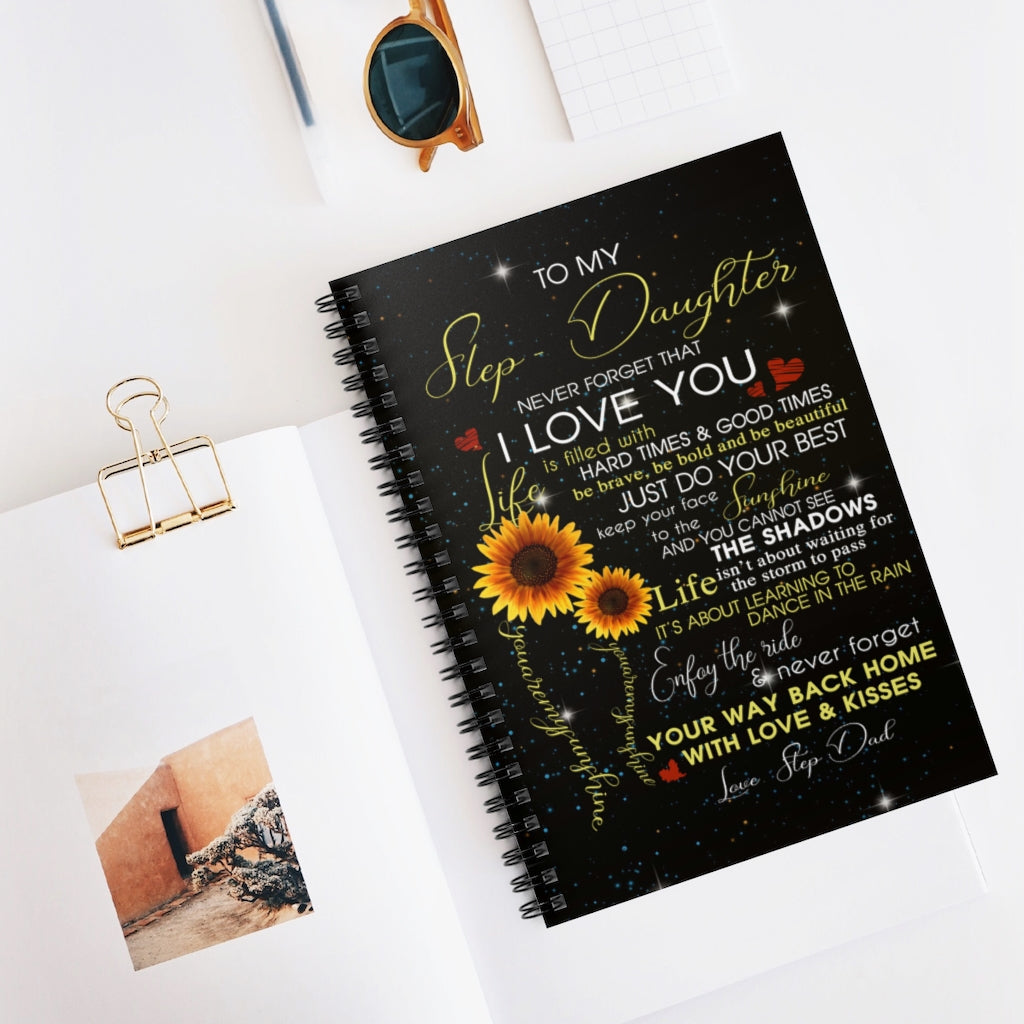 TO MY
Step - Daughter
NEVER FORGET THAT
I LOVE YOU
Life is filled with
HARD TIMES & GOOD TIMES
be brave, be bold and be beautiful
JUST DO YOUR BEST
keep your face
to the Sunshine
AND YOU CANNOT SEE
THE SHADOWS
Life isn't about waiting for
the storm to pass
IT'S ABOUT LEARNING TO
DANCE IN THE RAIN
Enjoy the ride
& never forget
YOUR WAY BACK HOME
WITH LOVE & KISSES
Love Step Dad
youaremysunshine
youaremysunshine